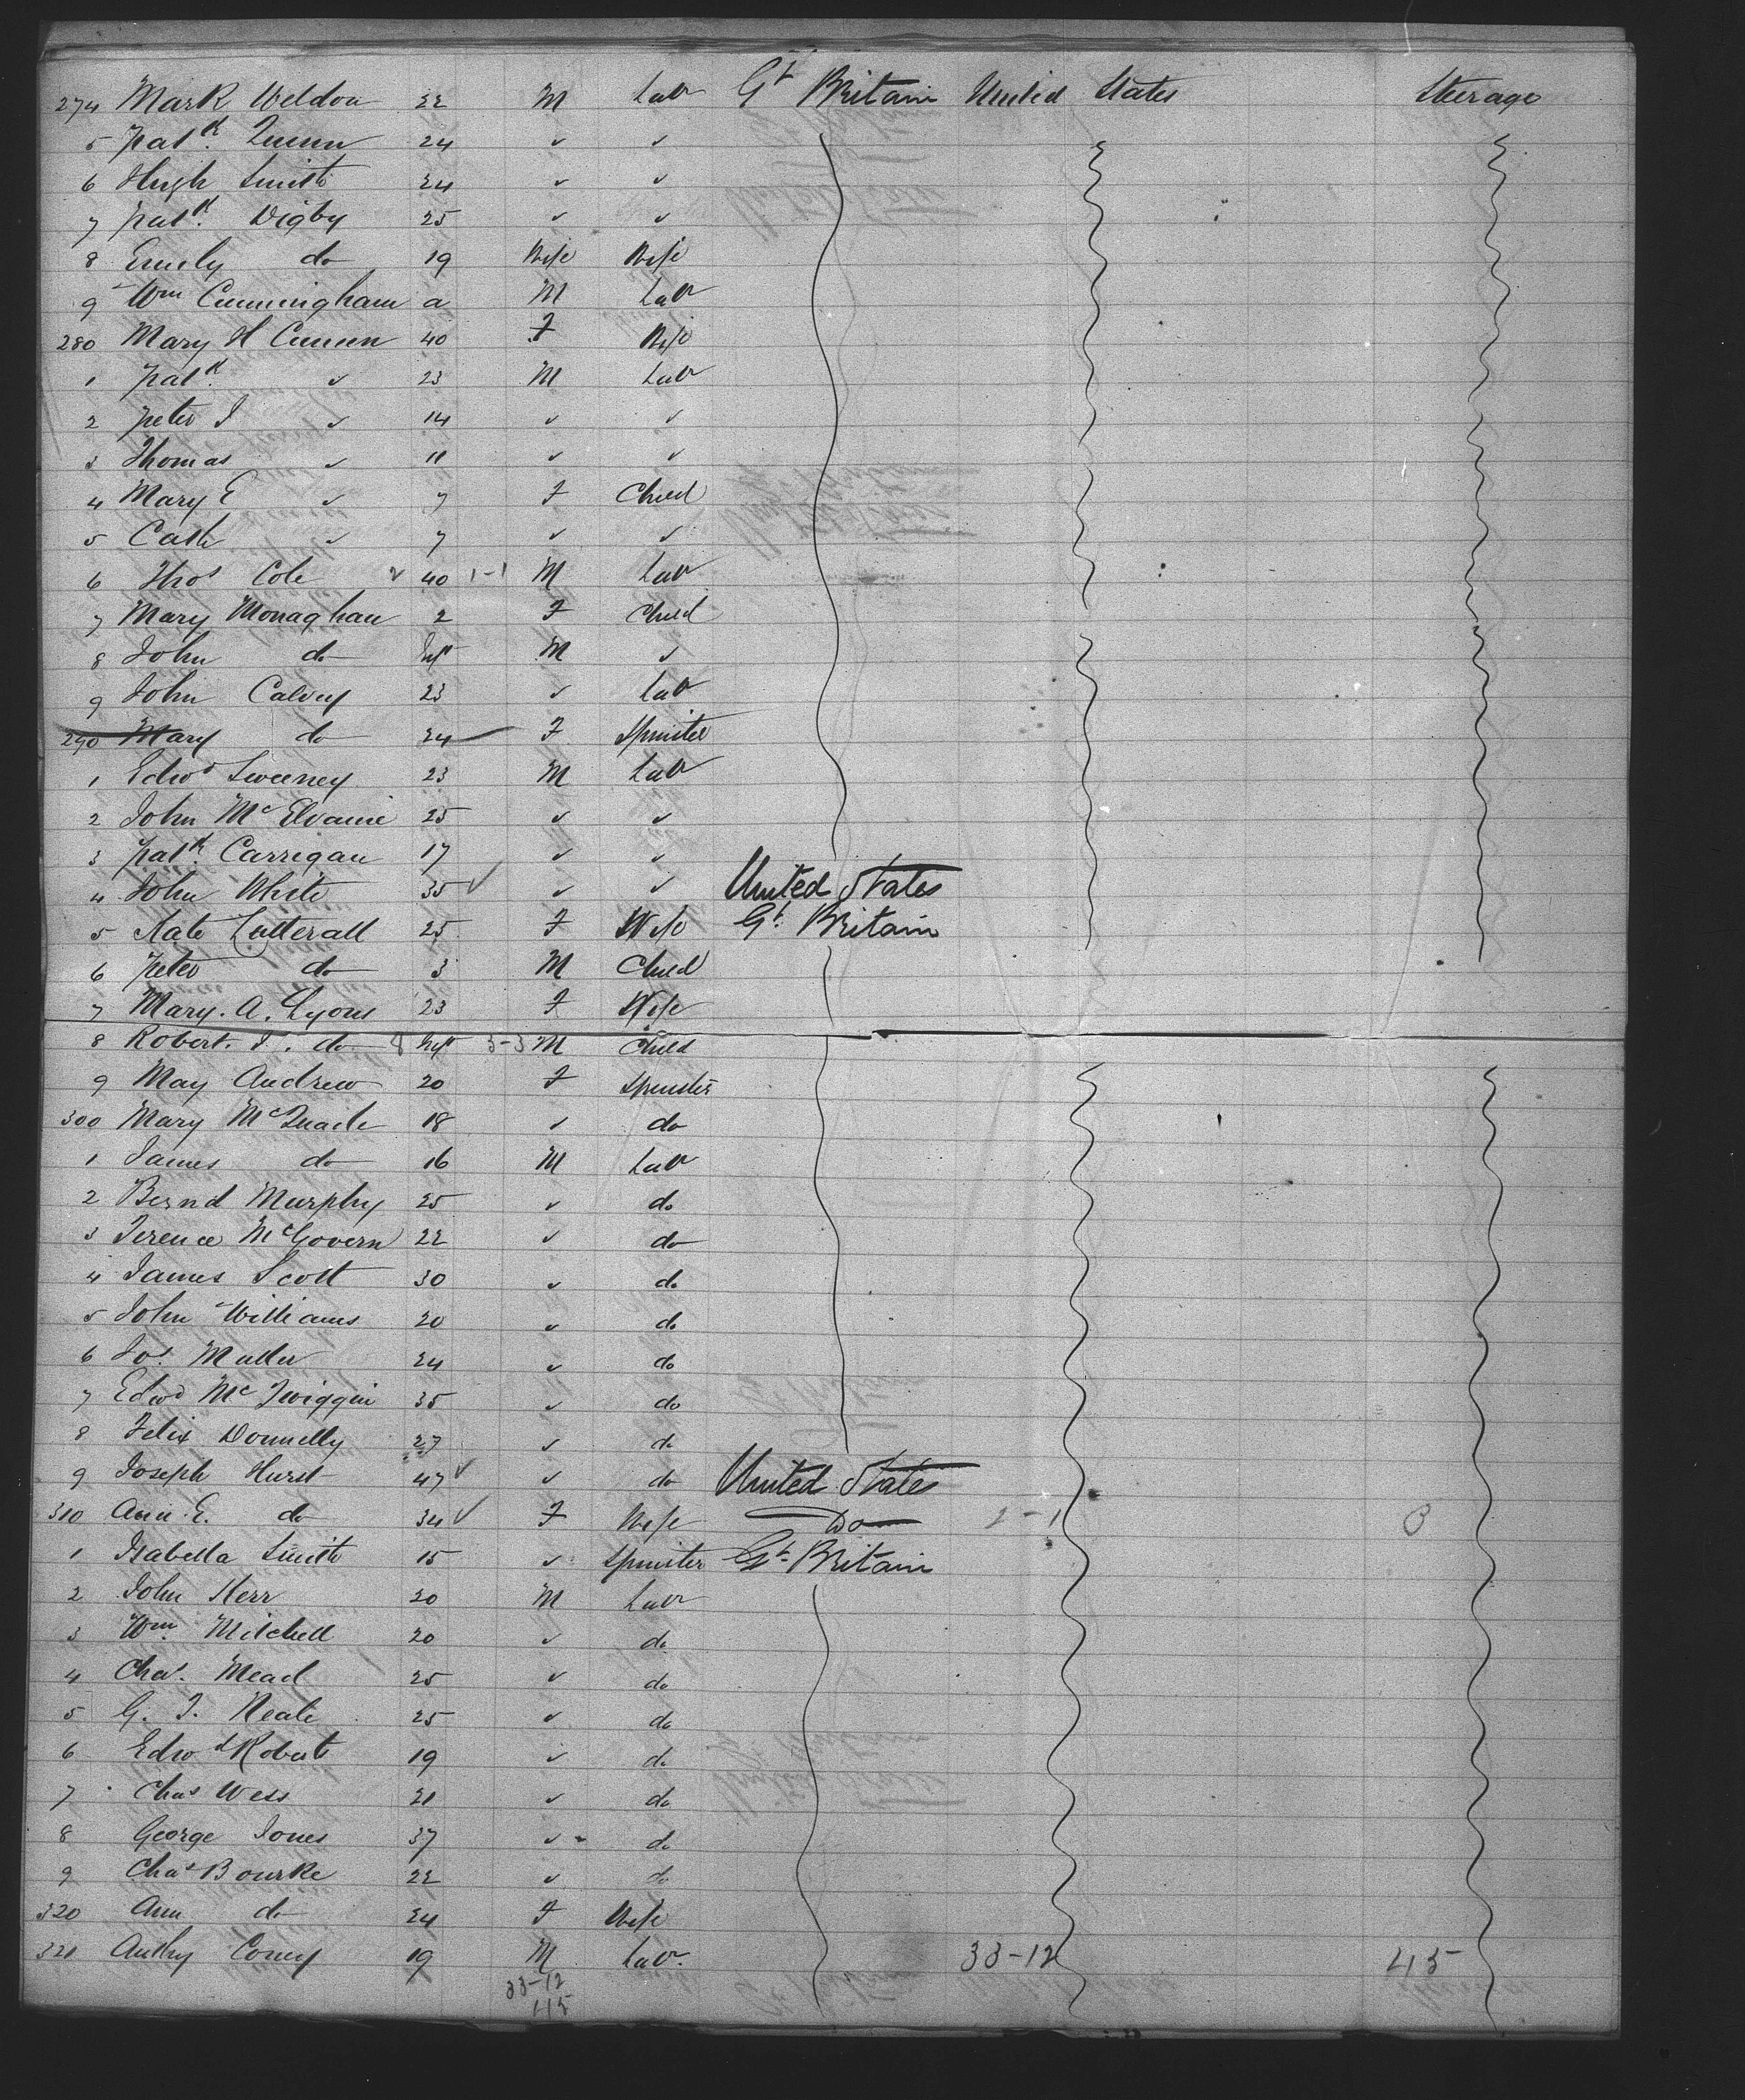 274 Mark Weldon 22 M Labr Gt Britain United States Steerage
5 Patk. Quinn 24 ✓ ✓
6 Hugh Smith 24 ✓ ✓
7 Patk. Digby 25 ✓ ✓
8 Emily do 19 Wife Wife
9 Wm Cunningham a M Labr
280 Mary H Cunen 40 F Wife
1 Patk. ✓ 23 M Labr
2 Peter J ✓ 14 ✓ ✓
3 Thomas ✓ 11 ✓ ✓
4 Mary E ✓ 7 F Child
5 Cath ✓ 7 ✓ ✓
6 Thos Cole 40 1-1 M Labr
7 Mary Monaghan 2 F Child
8 John do Inft M ✓
9 John Calvey 23 ✓ Labr
290 Mary do 24 F Spinster
1 Edwd Sweeney 23 M Labr
2 John McElvaine 25 ✓ ✓
3 Patk. Carrigan 17 ✓ ✓
4 John White 35 ✓ ✓ ✓ United States
5 Kate Lutterall 25 F Wife Gt. Britain
6 Peter do 3 M Child
7 Mary. A. Lyons 23 F Wife
8 Robert. J. do Inft 3-3 M Child
9 May Andrew 20 F Spinster
300 Mary McQuade 18 ✓ do
1 James do 16 M Labr
2 Bernd Murphy 25 ✓ do
3 Terence McGovern 22 ✓ do
4 James Scott 30 ✓ do
5 John Williams 20 ✓ do
6 Jos. Muller 24 ✓ do
7 Edwd McTwiggin 35 ✓ do
8 Felix Donnelly 27 ✓ do
9 Joseph Hurst 47 ✓ ✓ do United States
310 Ann E. do 34 ✓ F Wife Do 2-1 3
1 Isabella Smith 15 ✓ Spinster Gt. Britain
2 John Kerr 20 M Labr
3 Wm. Mitchell 20 ✓ do
4 Chas. Mead 25 ✓ do
5 G. T. Neale 25 ✓ do
6 Edwd Robert 19 ✓ do
7 Chas Wess 21 ✓ do
8 George Jones 37 ✓ do
9 Chas Bourke 22 ✓ do
320 Ann do 24 F Wife
321 Anthy Coney 19 M Labr. 33-12 45
33-12
45